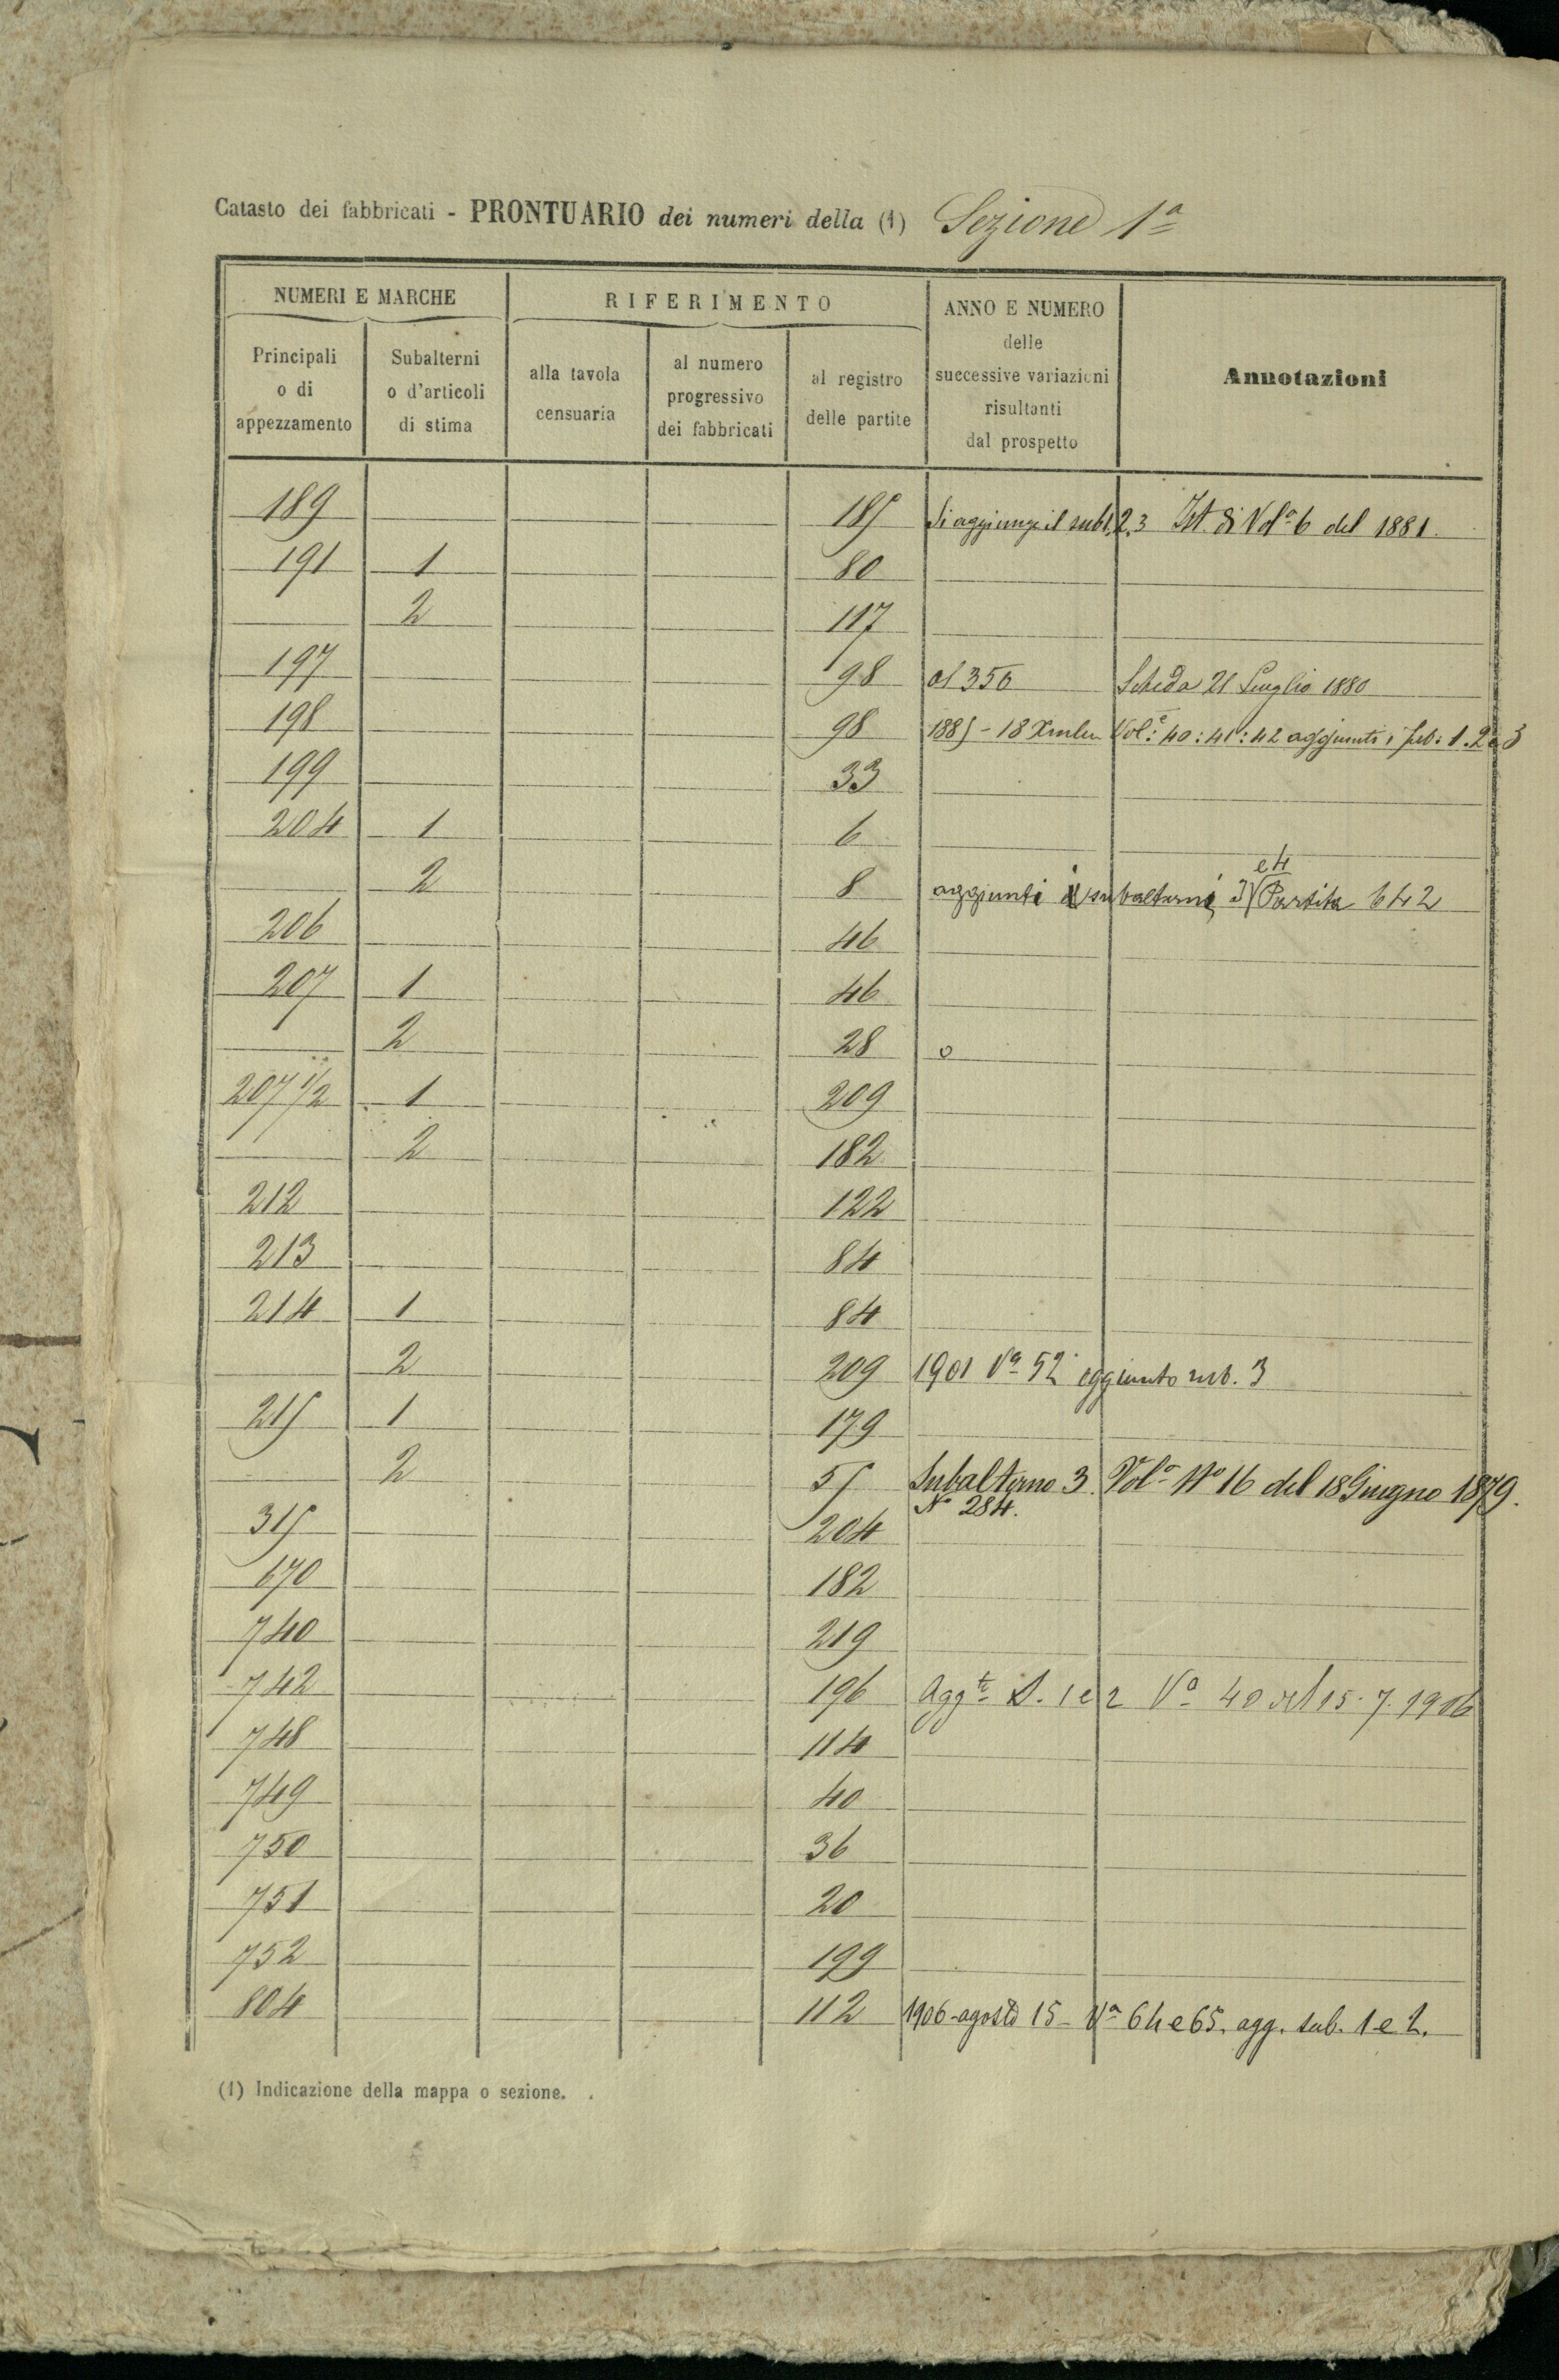 Catasto dei fabbricati - PRONTUARIO dei numeri della (1) Sezione 1ª
NUMERI E MARCHE
Principali o di appezzamento
Subalterni o d'articoli di stima
RIFERIMENTO
alla tavola censuaria
al numero progressivo dei fabbricati
al registro delle partite
ANNO E NUMERO delle successive variazioni risultanti dal prospetto
Annotazioni
189 185 Si aggiunge il sub 1,2,3 Ist. di Volª 6 del 1881.
191 1 80
2 117
197 98 al 350 Scheda 21 Luglio 1880
198 98 1885 - 18 Xmbre Vol: 40:41:42 aggiunti i sub: 1.2 e 3
199 33
204 1 6
2 8 aggiunti i subalterni 3 e 4 Partita 642
206 46
207 1 46
2 28
207 1/2 1 209
2 182
212 122
213 84
214 1 84
2 209 1901 Vª 52 aggiunto sub. 3
215 1 179
2 55 Subalterno 3. Volª Nº 16 del 18 Giugno 1879.
Nº 284.
315 204
670 182
740 219
742 196 Aggte S. 1 e 2 Vª 40 del 15.7.1906
748 114
749 40
750 36
751 20
752 199
804 112 1906 - agosto 15 - Vª 64 e 65. agg. sub. 1 e 2.
(1) Indicazione della mappa o sezione.